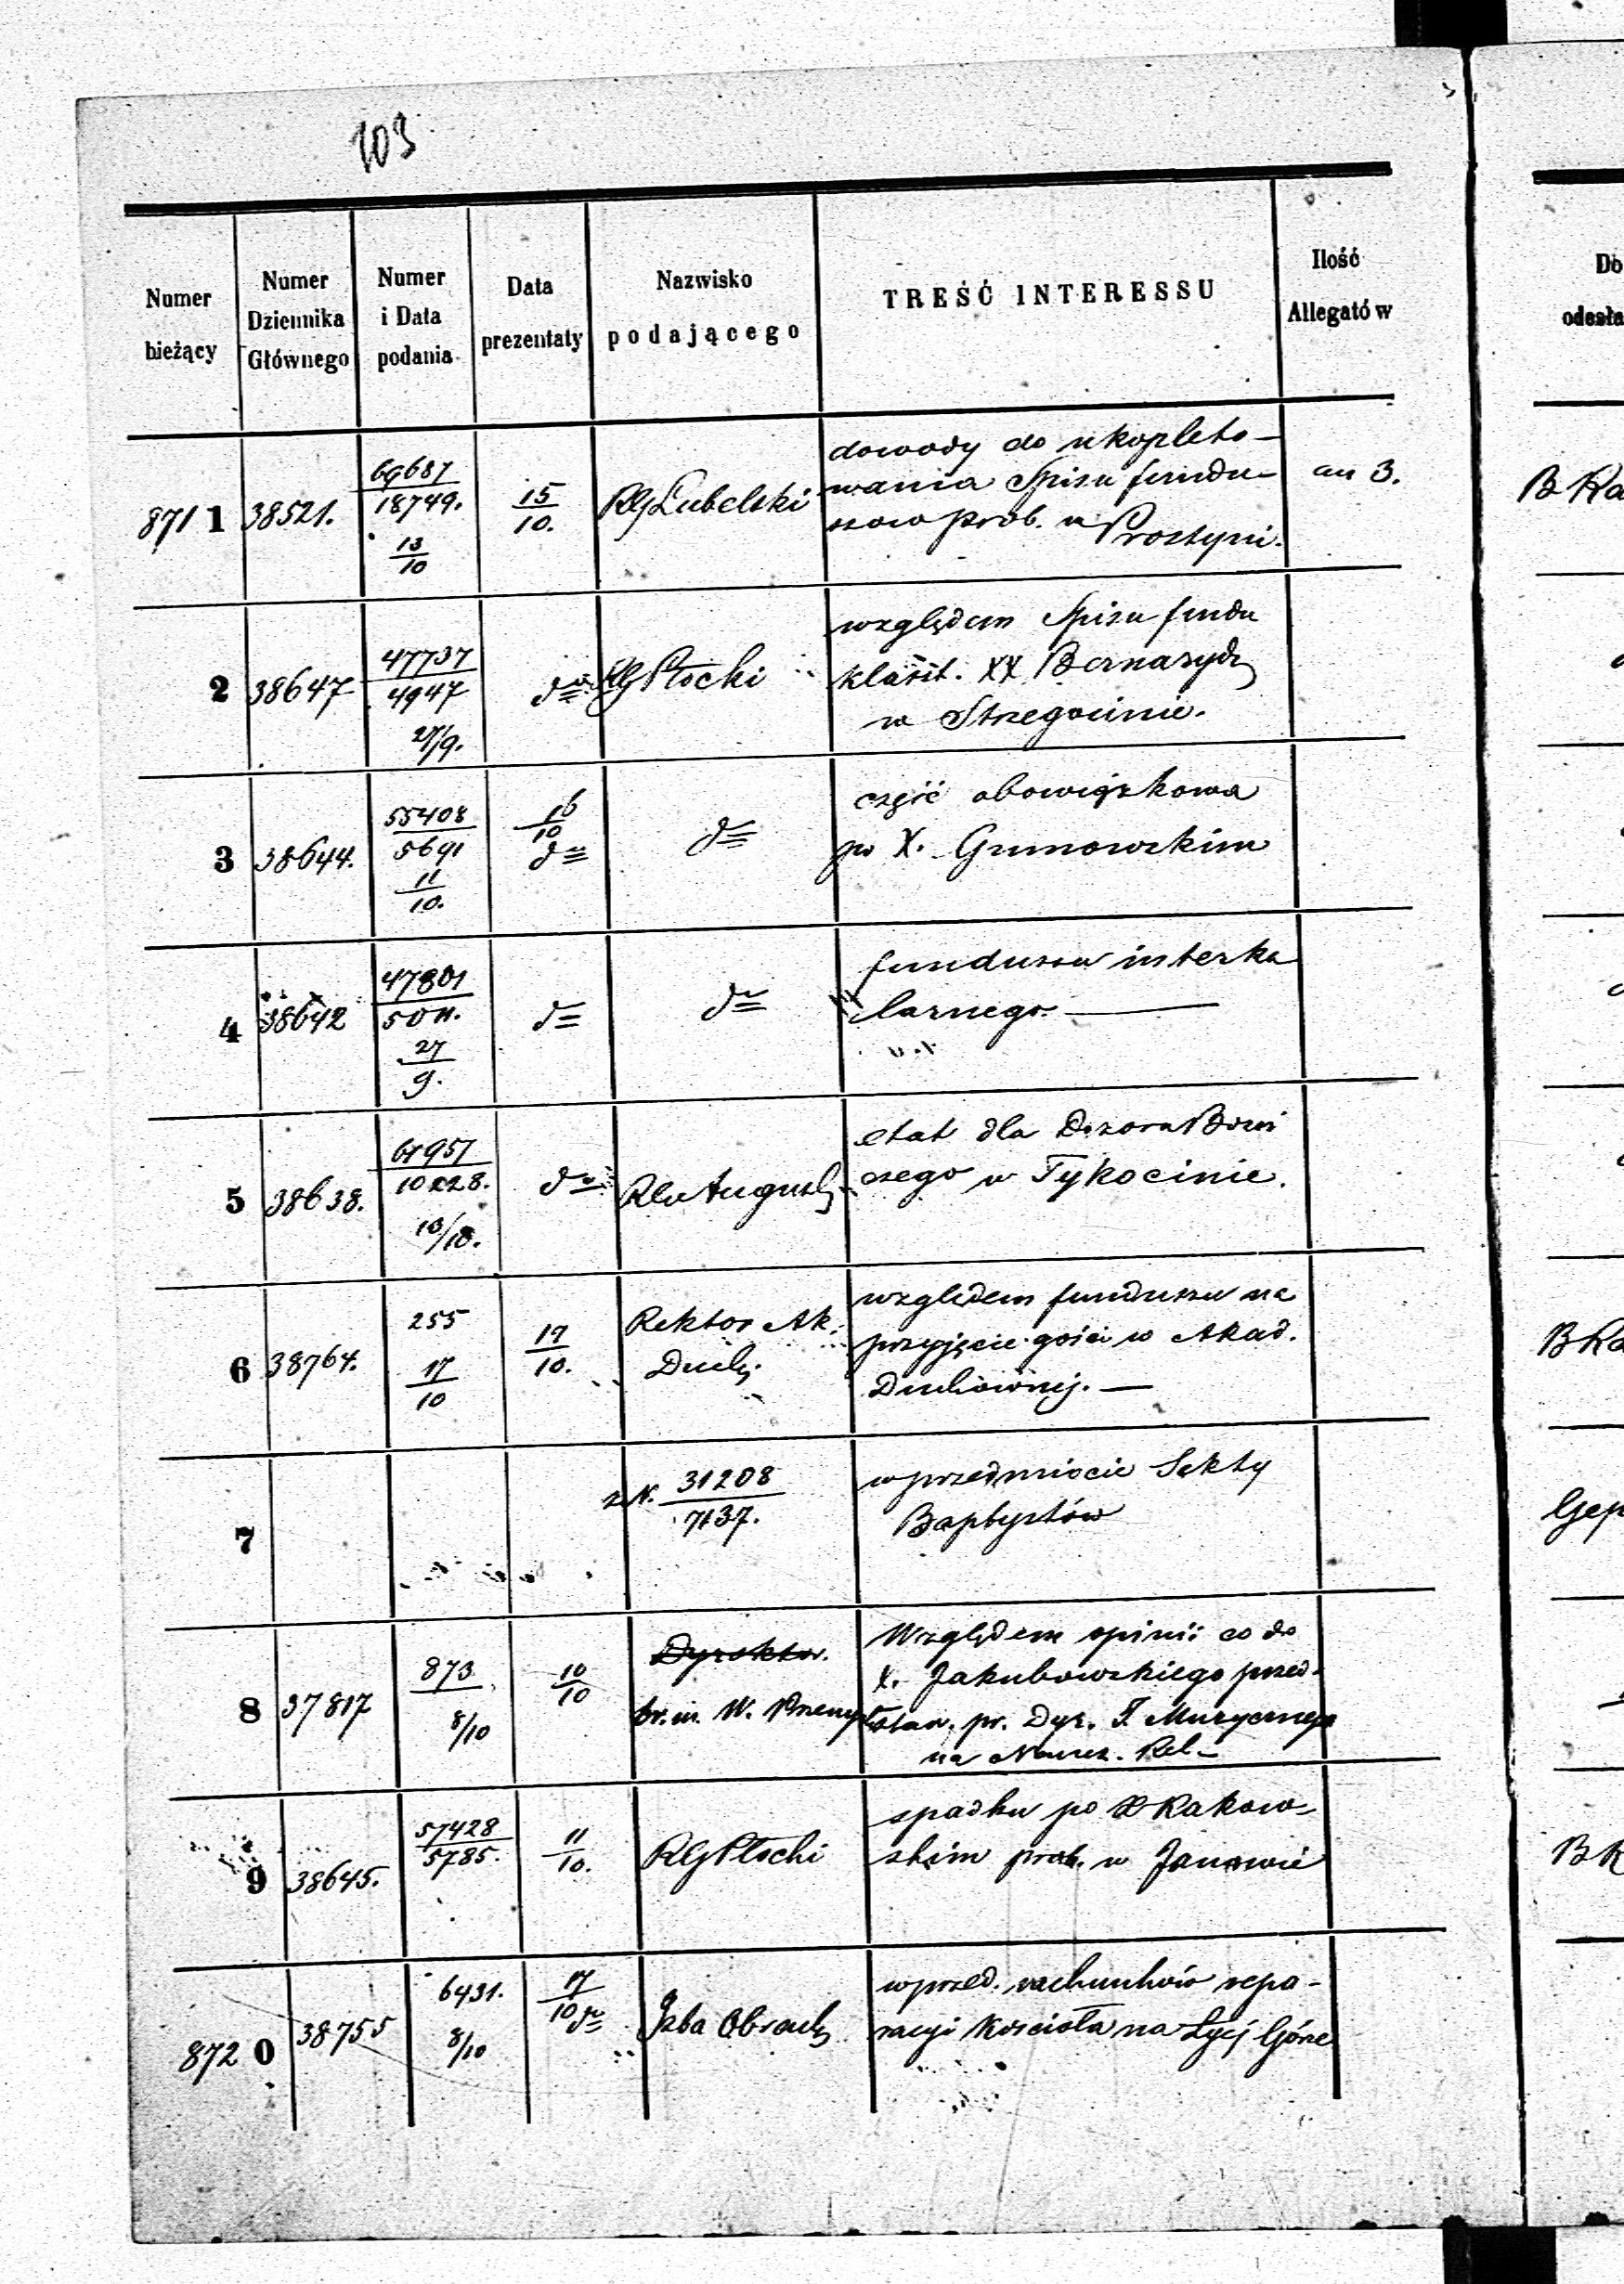 103
Numer bieżący
Numer Dziennika Głównego
Numer i Data podania
Data prezentaty
Nazwisko podającego
TREŚĆ INTERESSU
Ilość Allegatów
8711 38521. 69687/18749. 13/10 15/10. RGLubelski
dowody do ukopleto-
wania Spisu fundu-
szow prob. w Prostyni.
an 3.
2 38647 47737/4947 27/9. do RGPłocki
względem Spisu fundu
klaszt. XX Bernardy
w Strzegocinie.
3 38644. 55408/5691 11/10. 16/10 do do
część obowiązkowa
po X. Grunowskim
4 38642 47801/5011. 27/9. do do
funduszu interka
larnego.
5 38638. 61957/10228. 10/10. do RGAugust
etat dla Dozoru Bożni
czego w Tykocinie.
6 38764. 255 17/10 17/10. Rektor Ak.
Duch.
względem funduszu na
przyjęcie gości w Akad.
Duchownej.
7 z N. 31208/7137.
w przedmiocie Sekty
Baptystów
8 37817 873 8/10 10/10 Dyrektor.
W.
Względem opinii co do
X. Jakubowskiego przed-
staw. pr. Dyr. I. Muzycznego
na Naucz. Rel-
9 38645. 57428/5785. 11/10. RGPłocki
spadku po X Rakow-
skim prob. w Janowie
8720 38755 6431. 8/10 17/10 do Izba Obrach
w przed. rachunków repa-
racyi Kościoła na Łysej Górze
B
Do
odesła